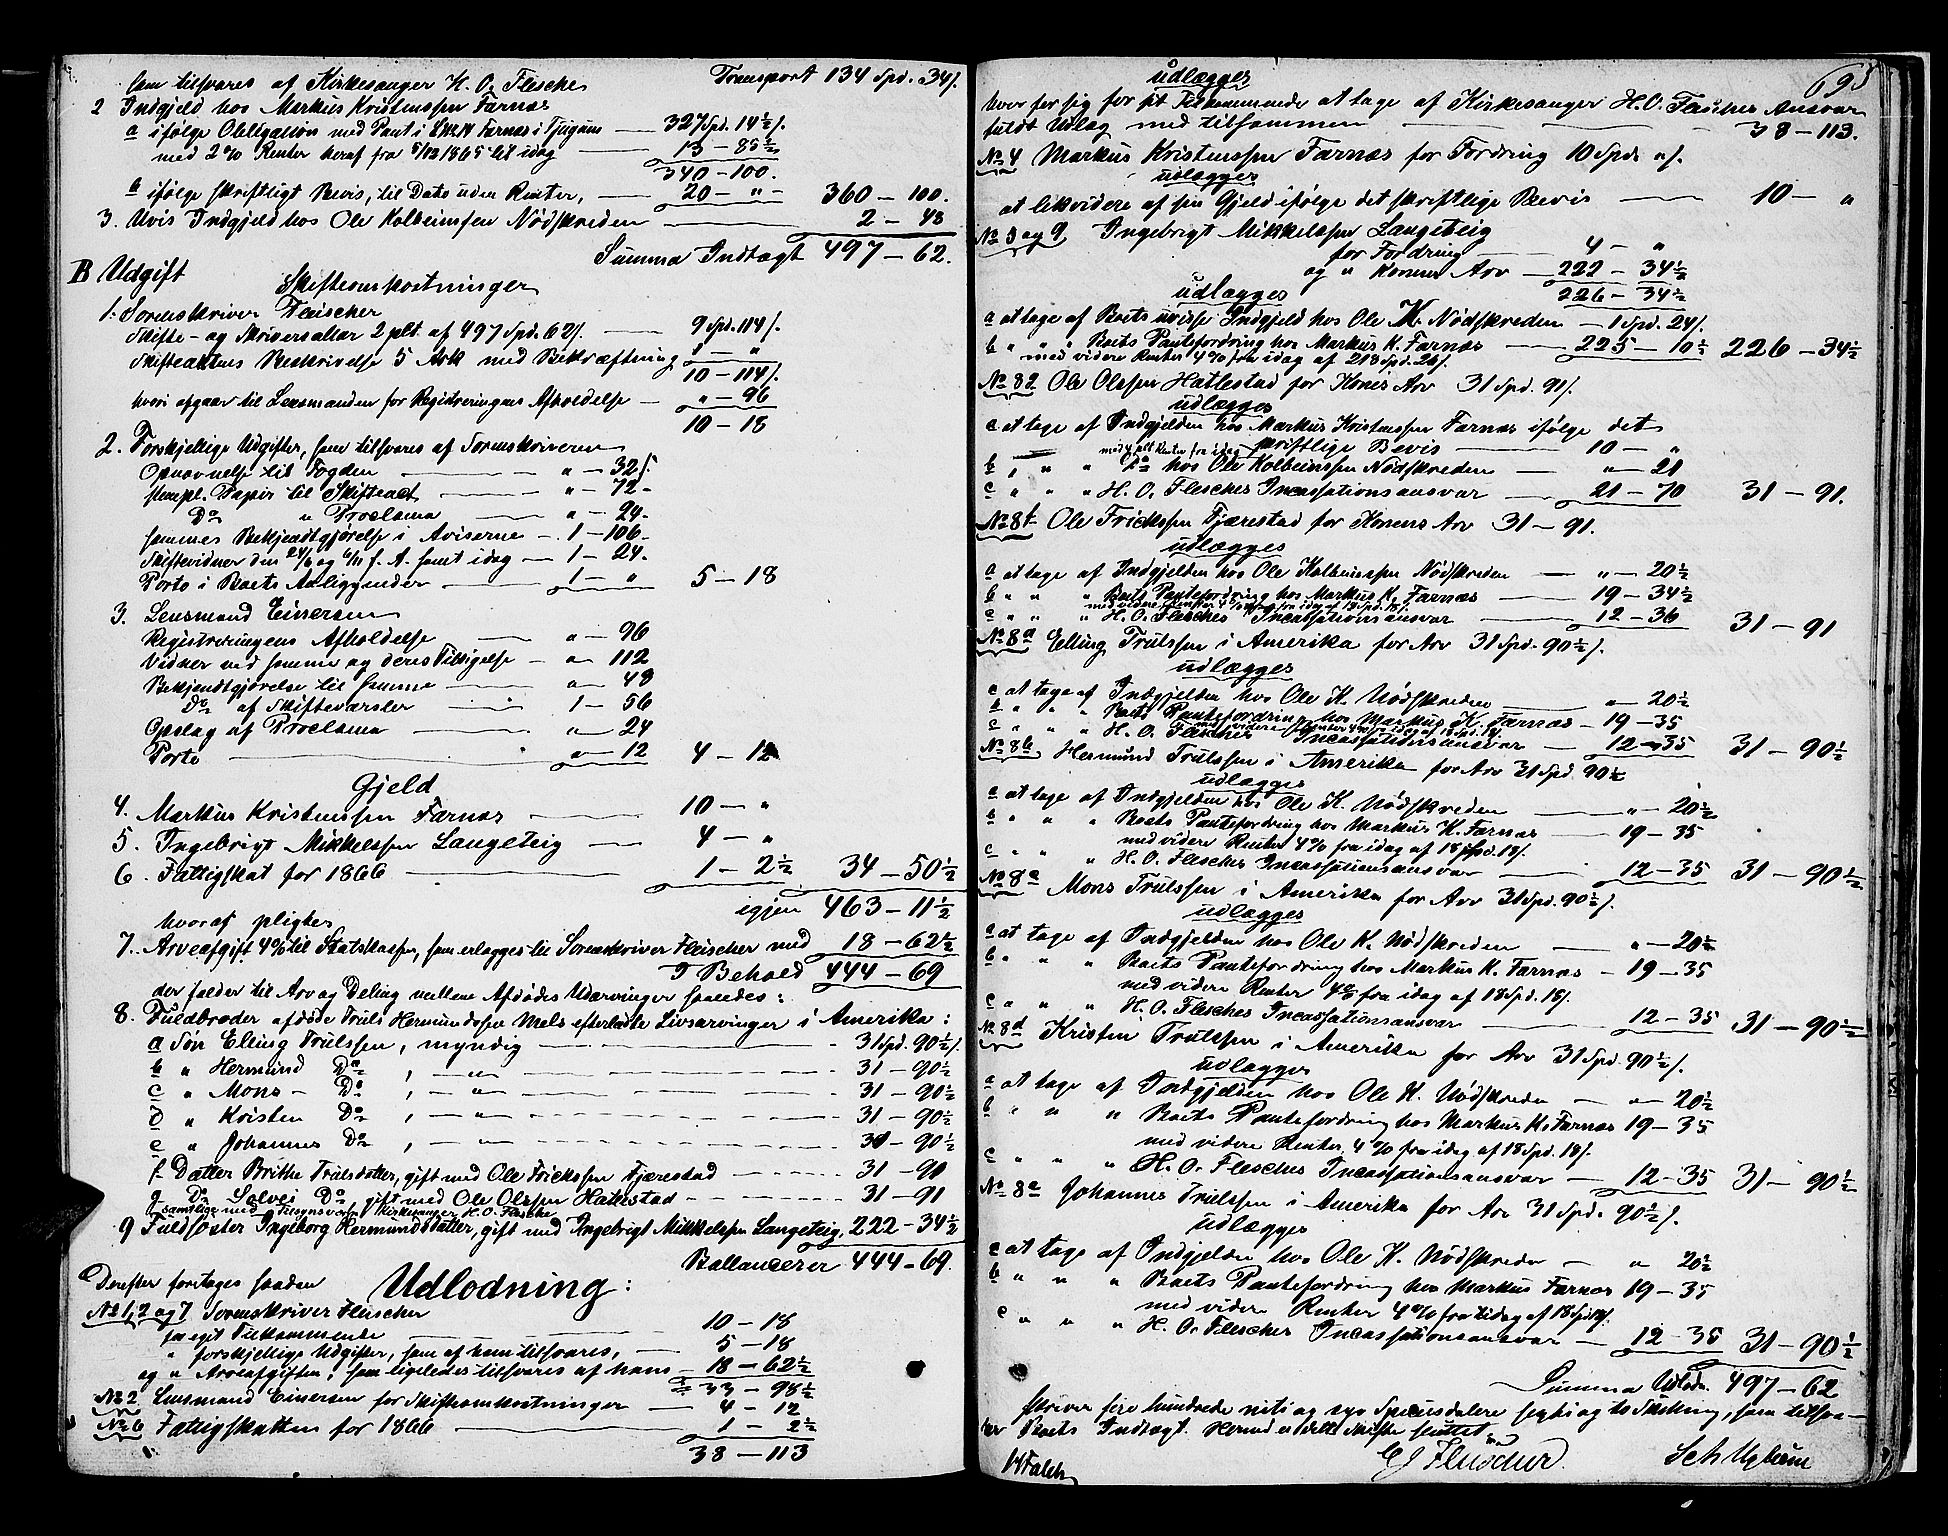 som tilsvares af Kirkesanger H. O. Flesche Transport 134 Spd. „34 /.
2 Indgjeld hos Markus Kristenssen Farnæs
a ifølge Obligation med Pant i Farnæs i Fjugum — 327 Spd. 14½ /.
med 2% Renter heraf fra 5/12 1865 til idag — 13 — 85½
340 — 100.
b ifølge skriftligt Bevis, til Dato uden Renter, — 20 — „ — 360 — 100.
3. Uvis Indgjeld hos Ole Kolbeinssen Nødskreden — 2 — 48
Summa Indtægt 497 — 62.
B Udgift
Skifteomkostninger
1. Sorenskriver Fleischer
Skifte- og Skriversallær 2 pct. af 497 Spd. 62 /. — 9 Spd. 114 /.
Skifteaktens Beskrivelse 5 Ark med Bekræftning 1 — „
10 — 114 /.
hvori afgaar til Lensmanden for Registreringens Afholdelse — „ — 96
10 — 18
2. Forskjellige Udgifter, som tilsvares af Sorenskriveren
Opnævnelse til Fogden — „ — 32 /.
stempl. Papir til Skifteact — „ — 72 —
Do „ Proclama — „ — 24 —
sammes Bekjendtgjørelse i Aviserne — 1 — 106.
Skiftevidner den 24/ og 6/11 f. A. samt idag — 1 — 24 —
Porto i Boets Anliggender — 1 — „ 5 — 18
3. Lensmand Einersen
Registreringens Afholdelse — „ — 96
Vidner ved samme og deres Tilsigelse — „ — 112
Bekjendtgjørelse til samme — „ — 48
Do af Skiftevarsler — 1 — 56
Opslag af Proclama — „ — 24
Porto — „ — 12 4 — 12
Gjeld
4. Markus Kristenssen Farnæs — 10 — „
5. Ingebrigt Mikkelssen Langeteig — 4 — „
6. Fattigskat for 1866 — 1 — 2½ 34 — 50½
igjen 463 — 11½
hvoraf pligtes
7. Arveafgift 4% til Statskassen, som erlægges til Sorenskriver Fleischer med 18 — 62½
I Behold 444 — 69
der falder til Arv og Deling mellem Afdødes Udarvinger saaledes:
8. Fuldbroder afdøde Truls Hermundssen Mels efterladte Livsarvinger i Amerika:
a Søn Elling Trulssen, myndig — 31 Spd. 90½ /.
b „ Hermund Do , — „ — 31 — 90½
c „ Mons — Do , — „ — 31 — 90½
d „ Kristen Do , — „ — 31 — 90½
e „ Johannes Do , — „ — 31 — 90½
f Datter Brithe Trulsdatter, gift med Ole Frickssen Fjærestad — 31 — 91
g Do Solvei Do, gift med Ole Olssen Hatlestad — 31 — 91
samtlige med Tilsynsværge Kirkesanger H. O. Flesche
9 Fuldsøster Ingeborg Hermundsdatter, gift med Ingebrigt Mikkelssen Langeteig, 222 — 34½
Ballancerer 444 — 69.
Derefter foretages saadan Udlodning:
No 1, 2 og 7 Sorenskriver Fleischer
for eget Tilkommende — 10 — 18
„ forskjellige Udgifter, som af ham tilsvares, — 5 — 18
og „ Arveafgiften, som ligeledes tilsvares af ham — 18 — 62½
33 — 98½
No 2 Lensmand Einersen for Skifteomkostninger — 4 — 12
No 6 Fattigskatten for 1866 — 1 — 2½
38 — 113
695
udlægges
hver for sig for sit Tilkommende at tage af Kirkesanger H. O. Flesches Ansvar
fuldt Udlæg med tilsammen — 38 — 113.
No 4 Markus Kristenssen Farnæs for Fordring 10 Spd. „ /.
udlægges
at likvidere af sin Gjeld ifølge det skriftlige Bevis — 10 — „
No 5 og 9 Ingebrigt Mikkelssen Langeteig
for Fordring — 4 — „
og „ Konens Arv — 222 — 34½
udlægges 226 — 34½
a at tage af Boets uvisse Indgjeld hos Ole K. Nødskreden — 1 Spd. 24 /.
b „ „ „ Boets Pantefordring hos Markus K. Farnæs — 225 — 10½ 226 — 34½
med videre Renter 4% fra idag af 218 Spd. 26 /.
No 8g Ole Olssen Hatlestad for Konens Arv 31 Spd. 91 /.
udlægges
a at tage af Indgjelden hos Markus Kristenssen Farnæs ifølge det
skriftlige Bevis — 10 — „
b „ „ „ Do hos Ole Kolbeinssen Nødskreden — „ — 21
c „ „ „ H. O. Flesches Incassationsansvar — 21 — 70 31 — 91.
No 8f Ole Frickssen Fjærestad for Konens Arv 31 — 91.
udlægges
a at tage af Indgjelden hos Ole Kolbeinssen Nødskreden — „ — 20½
b „ „ „ Boets Pantefordring hos Markus K. Farnæs — 19 — 34½
med videre Renter 4% fra idag af 18 Spd. 18 /.
c „ „ „ H. O. Flesches Incassationsansvar — 12 — 36 31 — 91
No 8a Elling Trulssen i Amerika for Arv 31 Spd. 90½ /.
udlægges
a at tage af Indgjelden hos Ole K. Nødskreden — „ — 20½
b „ „ „ Boets Pantefordring hos Markus K. Farnæs — 19 — 35
med videre Renter 4% fra idag af 18 Spd. 18 /.
c „ „ „ H. O. Flesches Incassationsansvar — 12 — 35 31 — 90½
No 8b Hermund Trulssen i Amerika for Arv 31 Spd. 90½
udlægges
a at tage af Indgjelden hos Ole K. Nødskreden — „ — 20½
b „ „ „ Boets Pantefordring hos Markus K. Farnæs — 19 — 35
med videre Renter 4% fra idag af 18 Spd. 18 /.
c „ „ „ H. O. Flesches Incassationsansvar — 12 — 35 31 — 90½
No 8c Mons Trulssen i Amerika for Arv 31 Spd. 90½ /.
udlægges
a at tage af Indgjelden hos Ole K. Nødskreden — „ — 20½
b „ „ „ Boets Pantefordring hos Markus K. Farnæs — 19 — 35
med videre Renter 4% fra idag af 18 Spd. 18 /.
c „ „ „ H. O. Flesches Incassationsansvar — 12 — 35 31 — 90½
No 8d Kristen Trulssen i Amerika for Arv 31 Spd. 90½ /.
udlægges
a at tage af Indgjelden hos Ole K. Nødskreden — „ — 20½
b „ „ „ Boets Pantefordring hos Markus K. Farnæs 19 — 35
med videre Renter 4% fra idag af 18 Spd. 18 /.
c „ „ „ H. O. Flesches Incassationsansvar — 12 — 35 31 — 90½
No 8e Johannes Trulssen i Amerika for Arv 31 Spd. 90½ /.
udlægges
a at tage af Indgjelden hos Ole K. Nødskreden — „ 20½
b „ „ „ Boets Pantefordring hos Markus Farnæs 19 — 35
med videre Renter 4% fra idag af 18 Spd. 18 /.
c „ „ „ H. O. Flesches Incassationsansvar — 12 — 35 31 — 90½
Summa Udlodn. 497 — 62
skriver fire hundrede niti og syv Speciesdalere sexti og to Skilling, som tilsva-
rer Boets Indtægt. Hermed er dette Skifte sluttet.
Falch CJ Fleischer